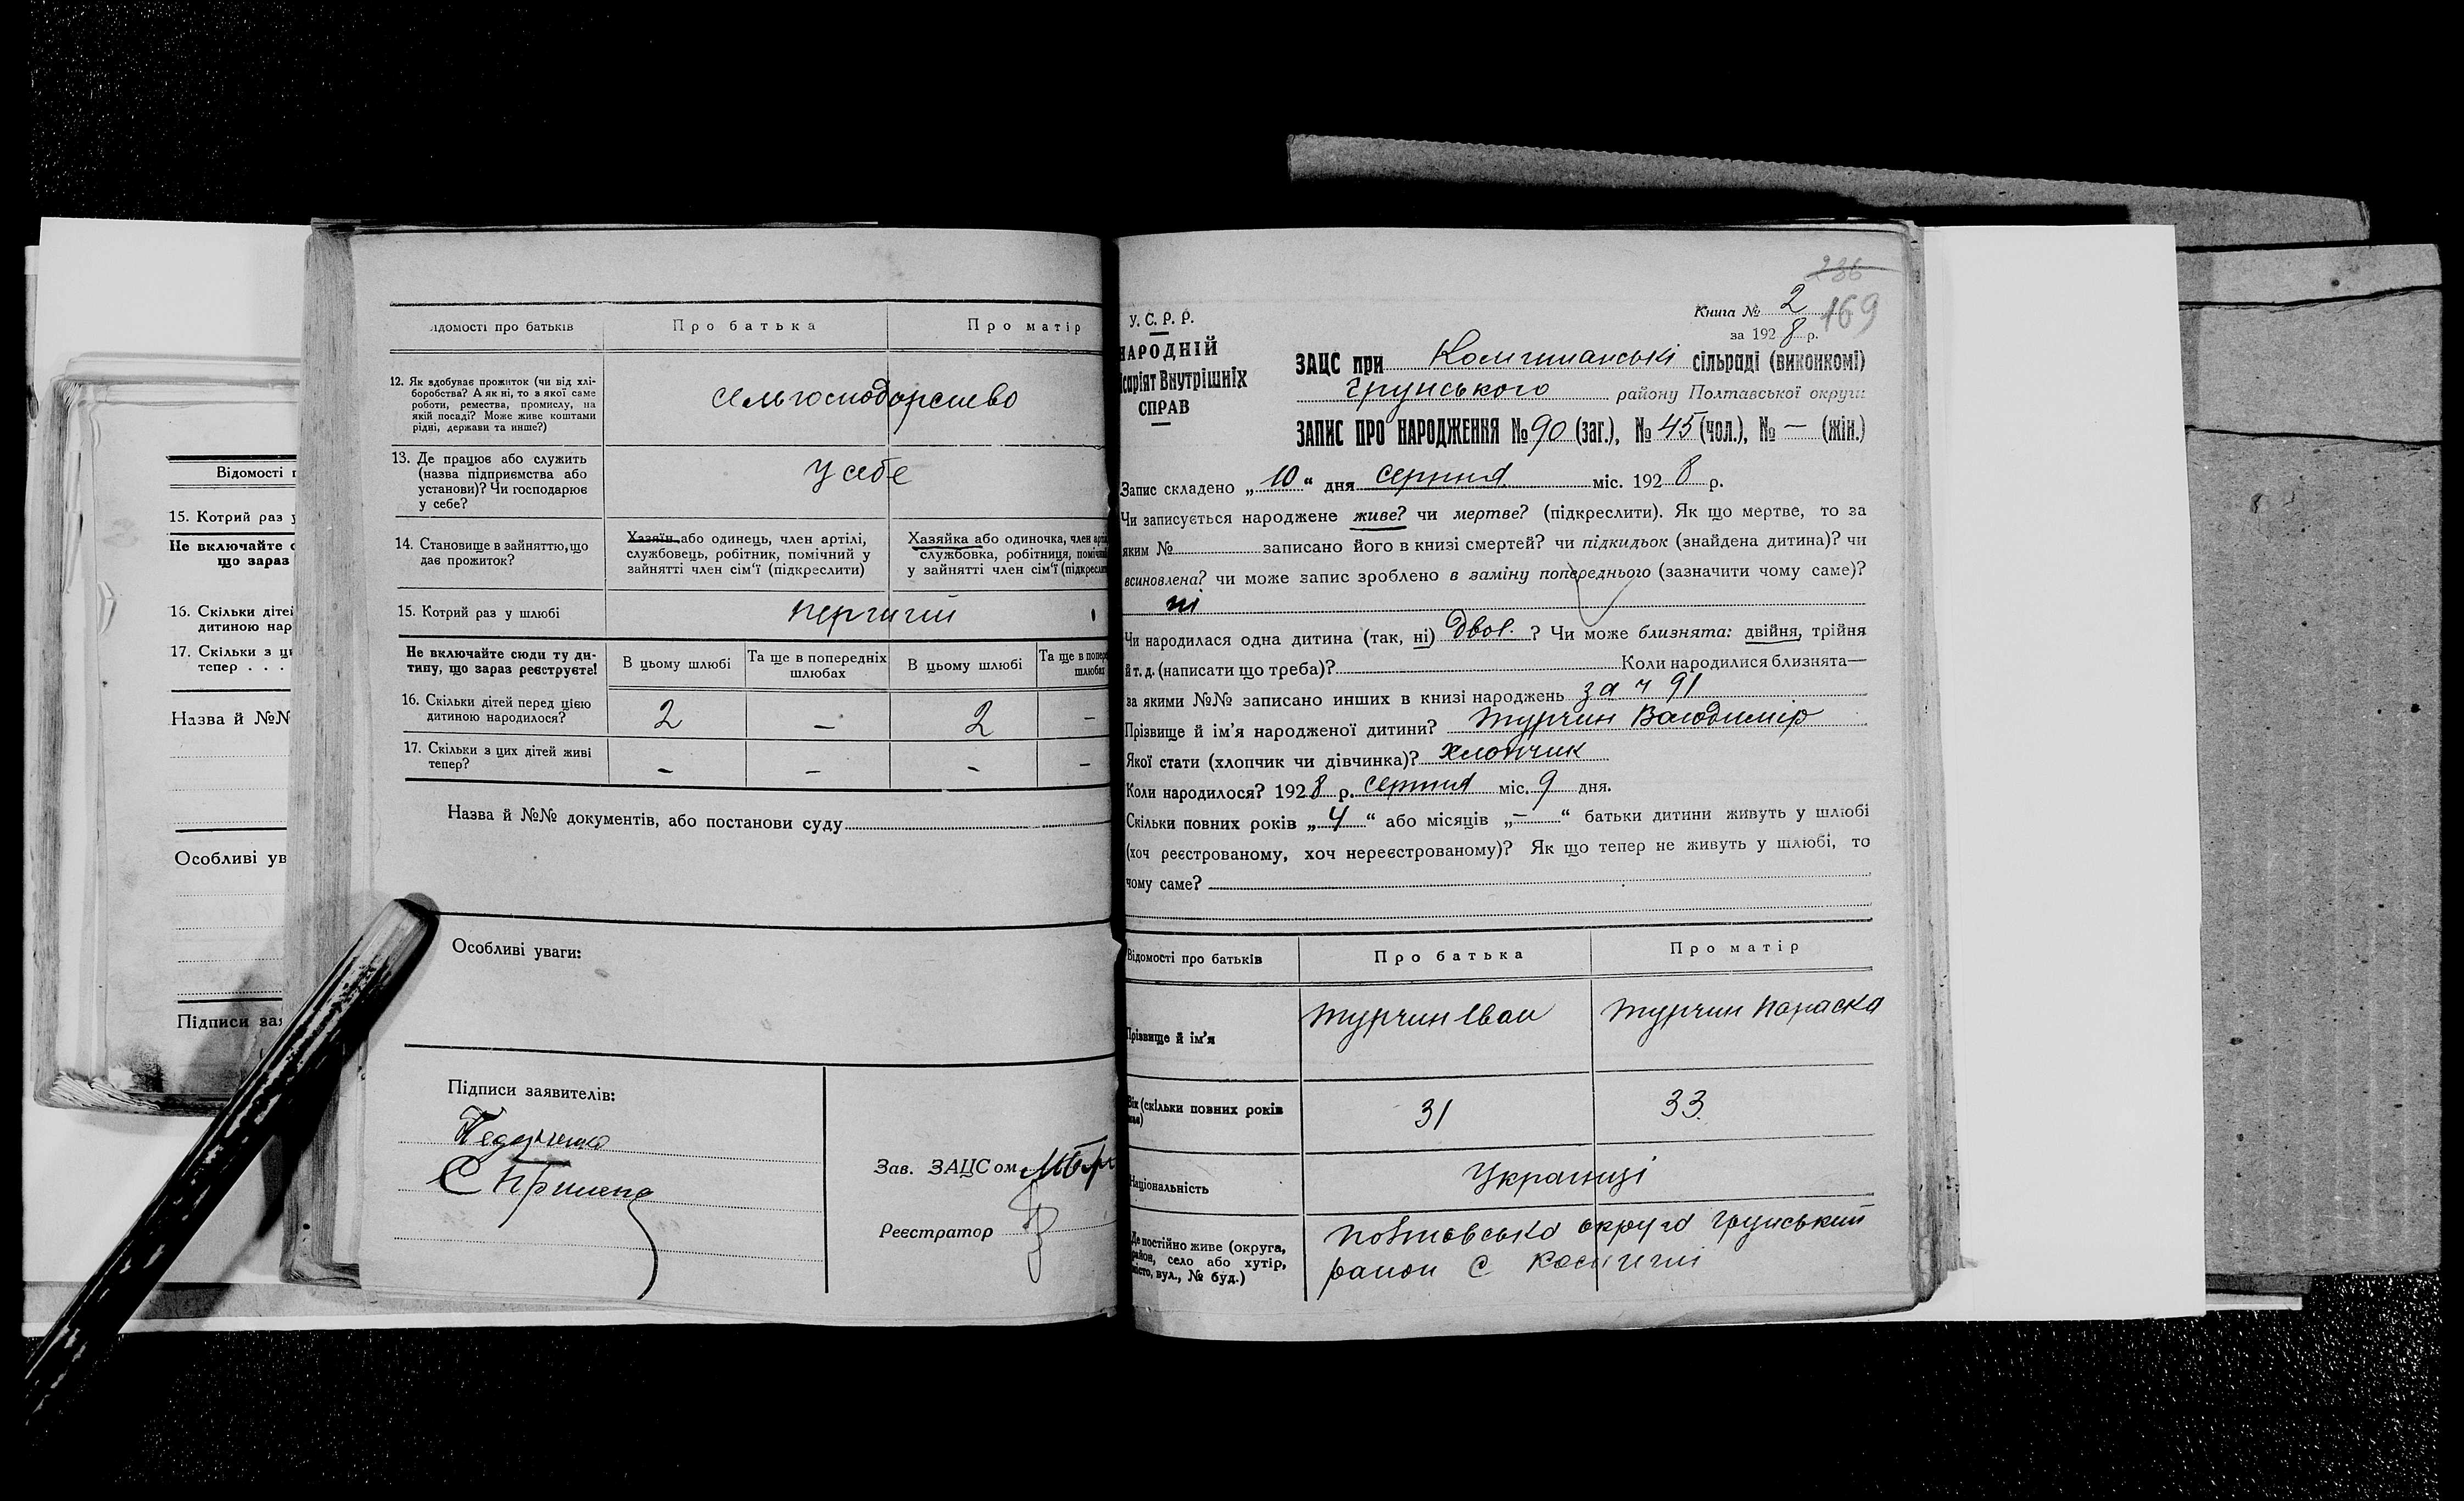 Відомості п
15. Котрий раз у
Не включайте с
що зараз
16. Скільки дітей
дитиною нар
17. Скільки з ци
тепер . . .
Назва й №№
Особливі ув
Підписи зая
ідомості про батьків
Про батька
Про матір
12. Як здобуває прожиток (чи від хлі-
боробства? А як ні, то з якої саме
роботи, ремества, промислу, на
якій посаді? Може живе коштами
рідні, держави та инше?)
сельгосподорство
13. Де працює або служить
(назва підприємства або
установи)? Чи господарює
у себе?
у себе
14. Становище в зайняттю, що
дає прожиток?
Хазяїн або одинець, член артілі,
службовець, робітник, помічний у
зайнятті член сім'ї (підкреслити)
Хазяйка або одиночка, член арті
службовка, робітниця, помічн
у зайнятті член сім'ї (підкресли
15. Котрий раз у шлюбі
перший
Не включайте сюди ту ди-
тину, що зараз реєструєте!
В цьому шлюбі
Та ще в попередніх
шлюбах
В цьому шлюбі
Та ще в попер
шлюбах
16. Скільки дітей перед цією
дитиною народилося?
2 — 2 —
17. Скільки з цих дітей живі
тепер?
— — — —
Назва й №№ документів, або постанови суду
Особливі уваги:
Підписи заявителів:
Зав. ЗАЦСом
Реєстратор
236
Книга № 2 169
за 1928 р.
У. С. Р. Р.
НАРОДНІЙ
ісаріят Внутрішніх
СПРАВ
ЗАЦС при сільраді (виконкомі)
Грунського району Полтавської округи
ЗАПИС ПРО НАРОДЖЕННЯ № 90 (заг.), № 45 (чол.), № — (жін.)
Запис складено „10“ дня серпня міс. 1928 р.
Чи записується народжене живе? чи мертве? (підкреслити). Як що мертве, то за
яким № записано його в книзі смертей? чи підкидьок (знайдена дитина)? чи
всиновлена? чи може запис зроблено в заміну попереднього (зазначити чому саме)?
ні
Чи народилася одна дитина (так, ні) двої. ? Чи може близнята: двійня, трійня
й т. д. (написати що треба)? Коли народилися близнята—
за якими №№ записано инших в книзі народжень за ч 91
Прізвище й ім'я народженої дитини? Турчин Володимір
Якої стати (хлопчик чи дівчинка)? хлопчик
Коли народилося? 1928 р. серпня міс. 9 дня.
Скільки повних років „4“ або місяців „—“ батьки дитини живуть у шлюбі
(хоч реєстрованому, хоч нереєстрованому)? Як що тепер не живуть у шлюбі, то
чому саме?
Відомості про батьків
Про батька
Про матір
Прізвище й ім'я
Турчин Іван
Турчин Параска
Вік (скільки повних років
має)
31
33.
Національність
Українці
Де постійно живе (округа,
район, село або хутір,
місто, вул., № буд.)
Повтавська округа Грунський
район с